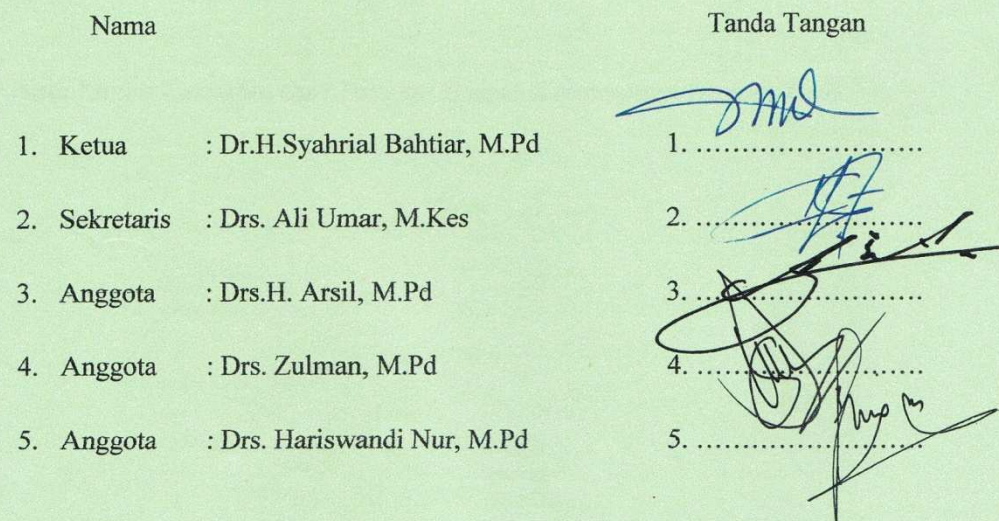 Nama Tanda Tangan
1. Ketua : Dr.H.Syahrial Bahtiar, M.Pd 1. ........................
2. Sekretaris : Drs. Ali Umar, M.Kes 2. ........................
3. Anggota : Drs.H. Arsil, M.Pd 3. ........................
4. Anggota : Drs. Zulman, M.Pd 4. ........................
5. Anggota : Drs. Hariswandi Nur, M.Pd 5. ........................